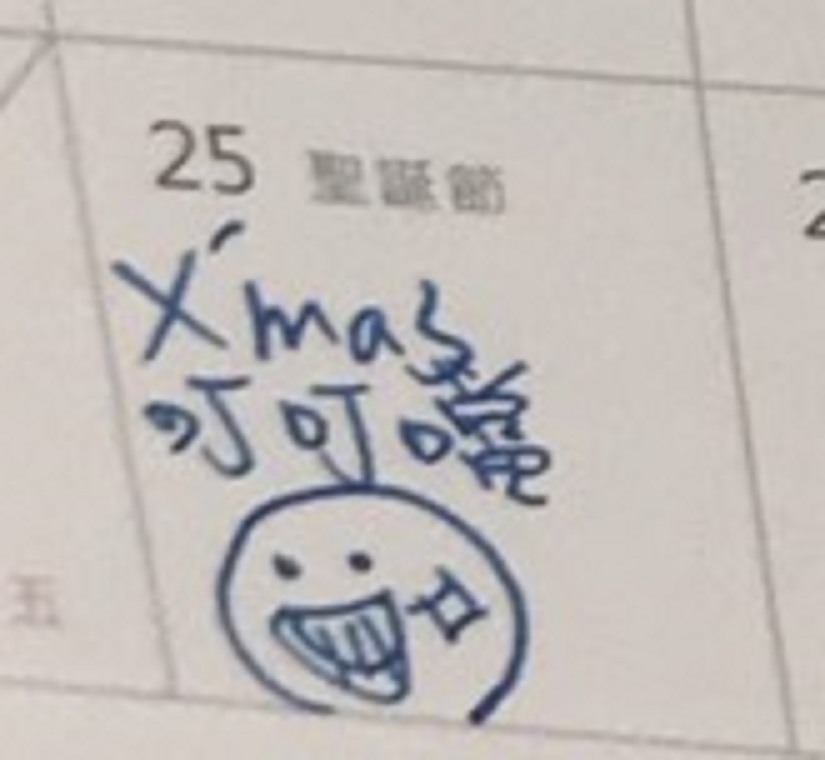 25 聖誕節
X'mas
叮叮噹
五